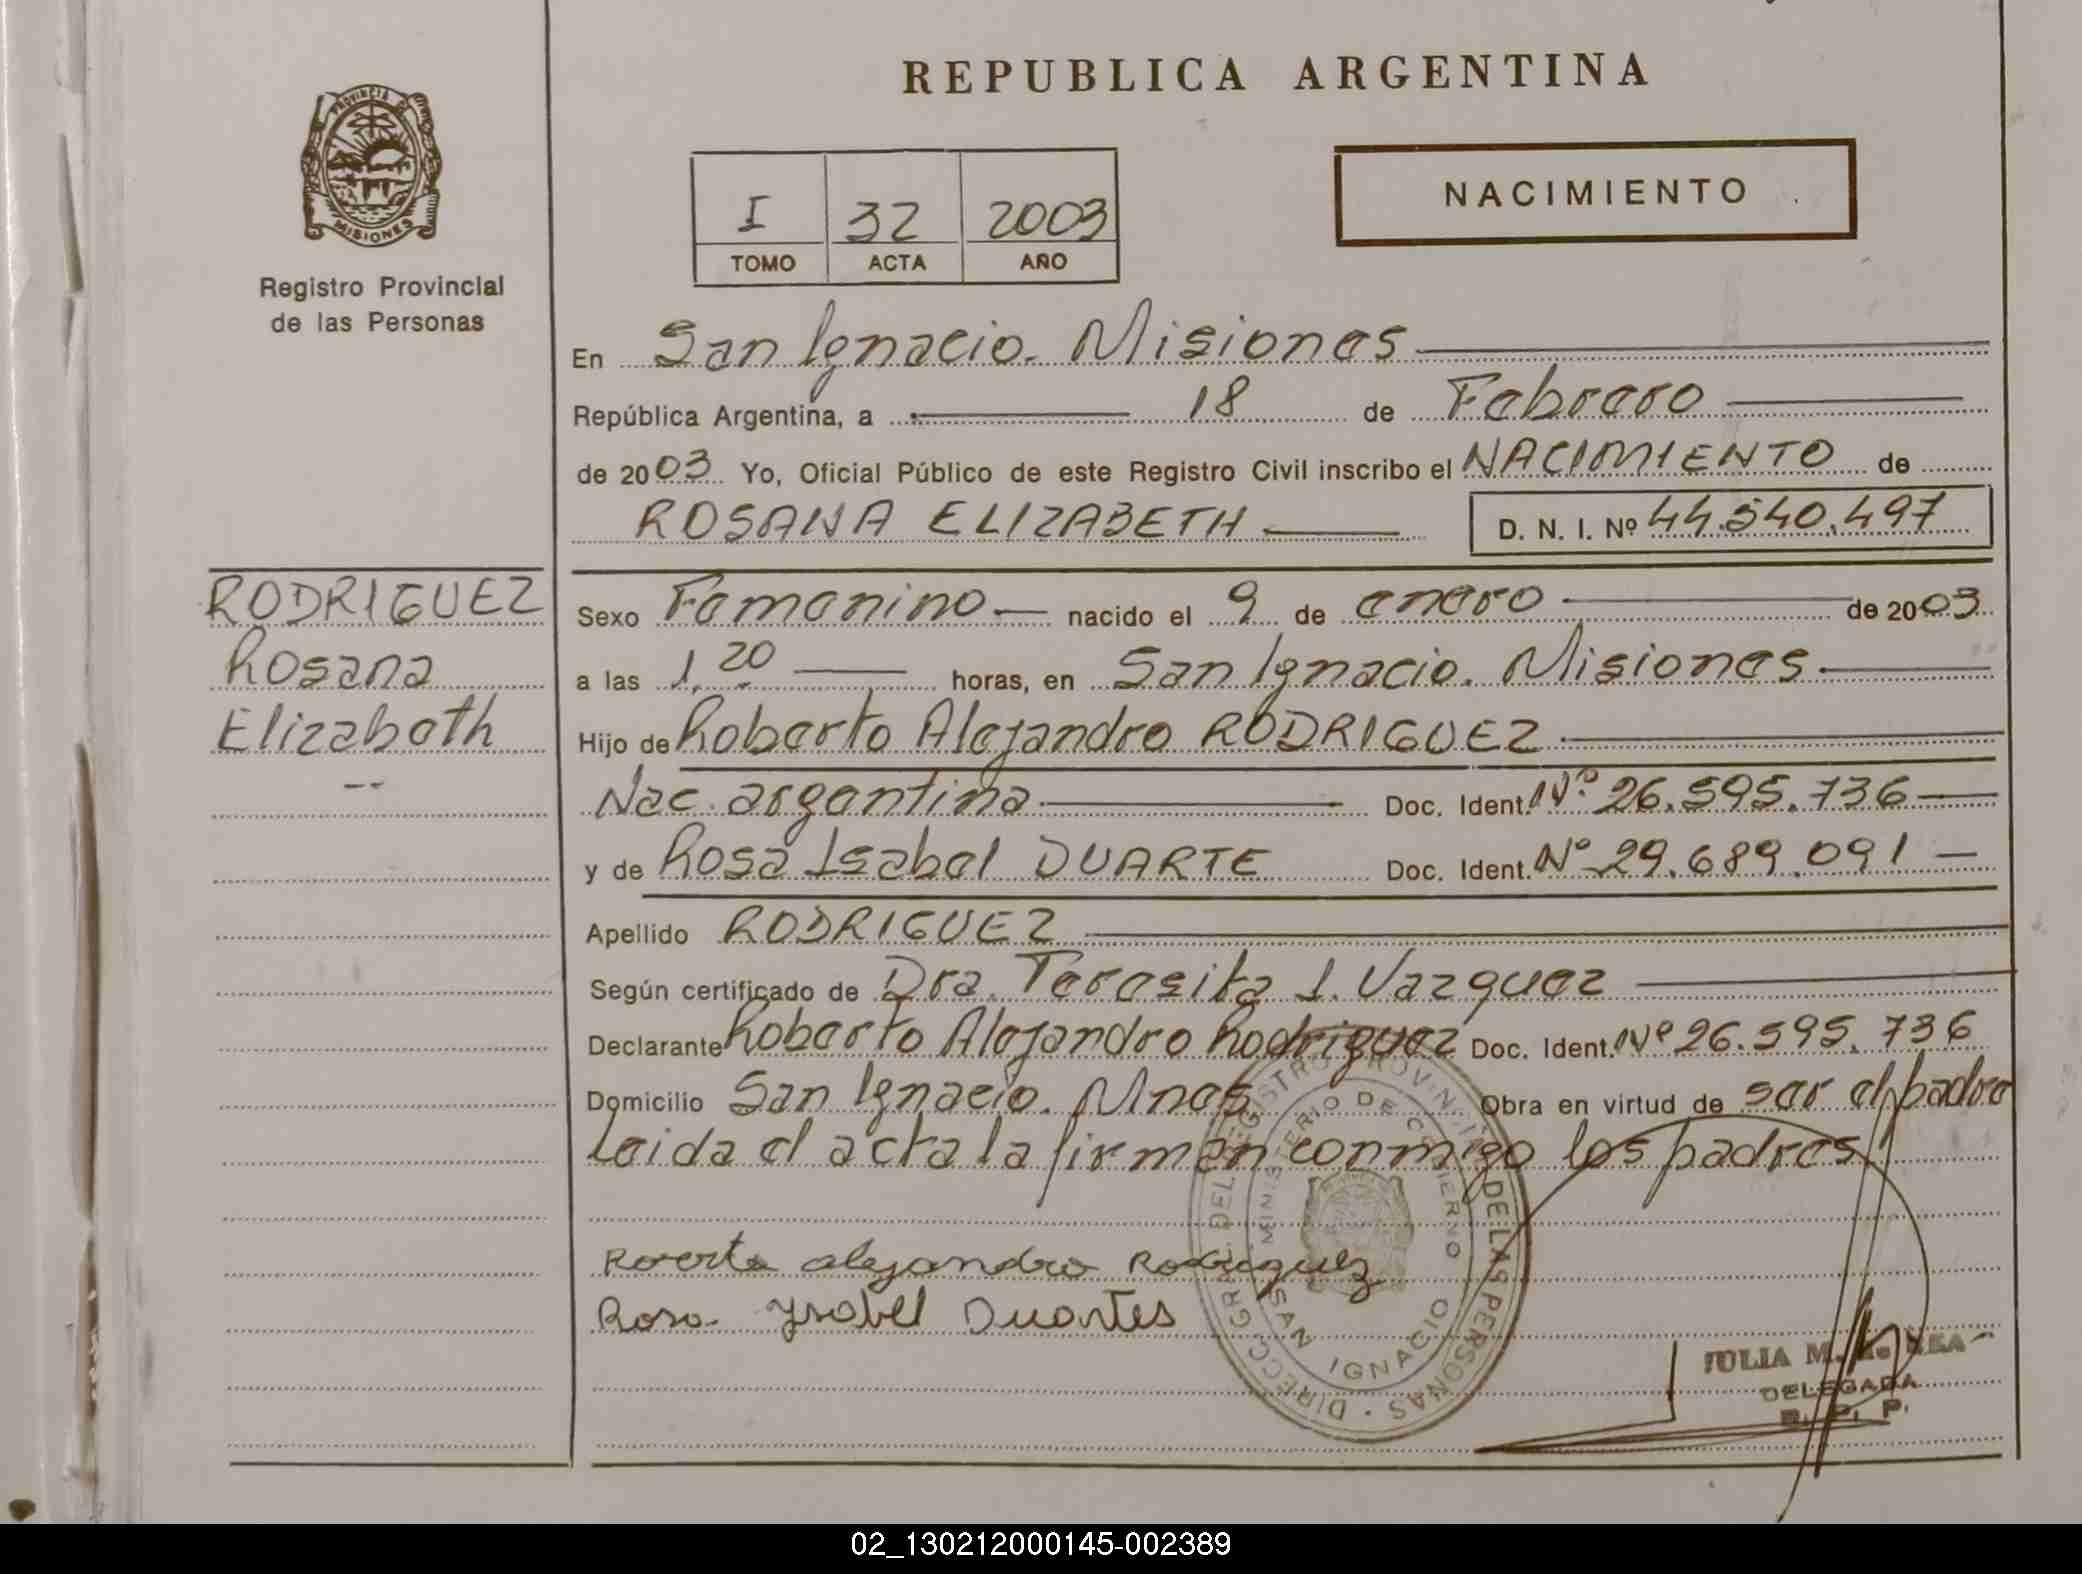 REPUBLICA ARGENTINA
PROVINCIA DE
MISIONES
Registro Provincial
de las Personas
NACIMIENTO
I 32 2003
TOMO ACTA AÑO
En San Ignacio. Misiones
República Argentina, a 18 de Febrero
de 2003 Yo, Oficial Público de este Registro Civil inscribo el NACIMIENTO de
ROSANA ELIZABETH D. N. I. Nº 44.540.497
RODRIGUEZ
Rosana
Elizabeth
Sexo Femenino nacido el 9 de enero de 2003
a las 1,20 horas, en San Ignacio. Misiones
Hijo de Roberto Alejandro RODRIGUEZ
Nac. argentina Doc. Ident. Nº 26.595.736
y de Rosa Isabel DUARTE Doc. Ident. Nº 29.689.091
Apellido RODRIGUEZ
Según certificado de Dra. Teresita I. Vazquez
Declarante Roberto Alejandro Rodriguez Doc. Ident. Nº 26.595.736
Domicilio San Ignacio. Mnes Obra en virtud de ser el padre
Leida el acta la firman conmigo los padres
Roerto alejandro Rodriguez
Rosa Ysabel Duartes
DIRECC. GRAL. DEL REGISTRO PROVINCIAL DE LAS PERSONAS
MINISTERIO DE GOBIERNO
SAN IGNACIO
JULIA M.
DELEGADA
R. P. P.
02_130212000145-002389